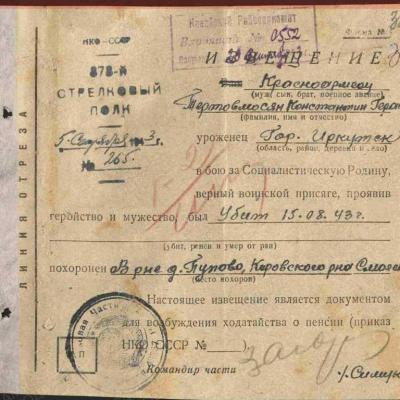 Кировский Райвоенкомат
Входящий № 0552
НКО—СССР
878-й
СТРЕЛКОВЫЙ
ПОЛК
5 Сентября 1943 г.
№ 265.
ЛИНИЯ ОТРЕЗА
Форма №
ИЗВЕЩЕНИЕ
Ваш Красноармеец
(муж, сын, брат, военное звание)
Константин
(фамилия, имя и отчество)
уроженец Гор. Иркутск
(область, район, деревня и село)
в бою за Социалистическую Родину,
верный воинской присяге, проявив
геройство и мужество, был Убит 15.08.43 г.
(убит, ранен и умер от ран)
похоронен В р-не д. Пупово, Кировского р-на Смолен
(место похорон)
Настоящее извещение является документом
для возбуждения ходатайства о пенсии (приказ
НКО СССР № ).
Командир части